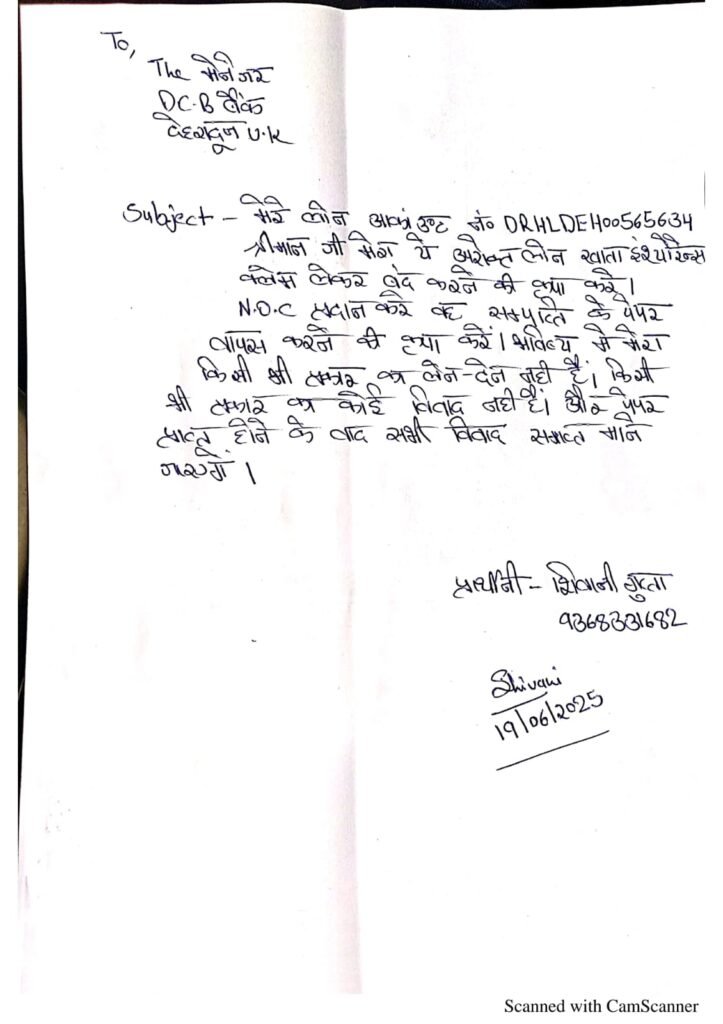 To,
The मैनेजर
DC.B बैंक
देहरादून U.K
Subject - मेरे लोन अकाउण्ट नं० DRHLDEH00565634
श्रीमान जी मेरा ये उपरोक्त लोन खाता इंश्योरेन्स
क्लेम लेकर बंद करने की कृपा करे।
N.O.C प्रदान करे व सम्पत्ति के पेपर
वापस करने की कृपा करें। भविष्य मे मेरा
किसी भी प्रकार का लेन-देन नही है। किसी
भी प्रकार का कोई विवाद नही है। और पेपर
प्राप्त होने के बाद सभी विवाद समाप्त माने
जाएगें।
प्रार्थीनी - शिवानी गुप्ता
9368331682
Shivani
19/06/2025
Scanned with CamScanner